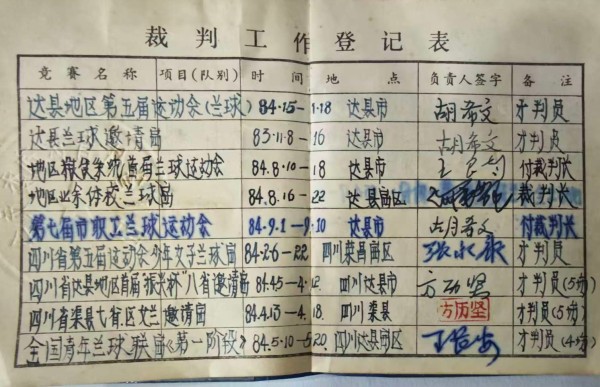 裁判工作登记表
竞赛名称 项目(队别) 时间 地点 负责人签字 备注
达县地区第五届运动会(兰球) 84·1·5-1·18 达县市 胡希文 才判员
达县兰球邀请 83·11·8-16 达县市 胡希文 才判员
地区 兰球运动会 84·8·10-18 达县市 付裁判长
地区业余体校兰球 84·8·16-22 达县 区 裁判长
第七届市职工兰球运动会 84·9·1-9·10 达县市 胡希文 付裁判长
四川省第五届运动会少年女子兰球 84·2·6-22 四川荣昌 区 张永康 才判员
四川省达县地区首届"振兴杯"八省邀请 84·4·5-4·12. 四川达县市 方历坚 才判员(5场)
四川省渠县七省区女兰邀请 84·4·13-4·18. 四川渠县 方历坚 才判员(5场)
全国青年兰球联 《第一阶段》 84·5·10-5·20. 四川达县 区 才判员(4场)